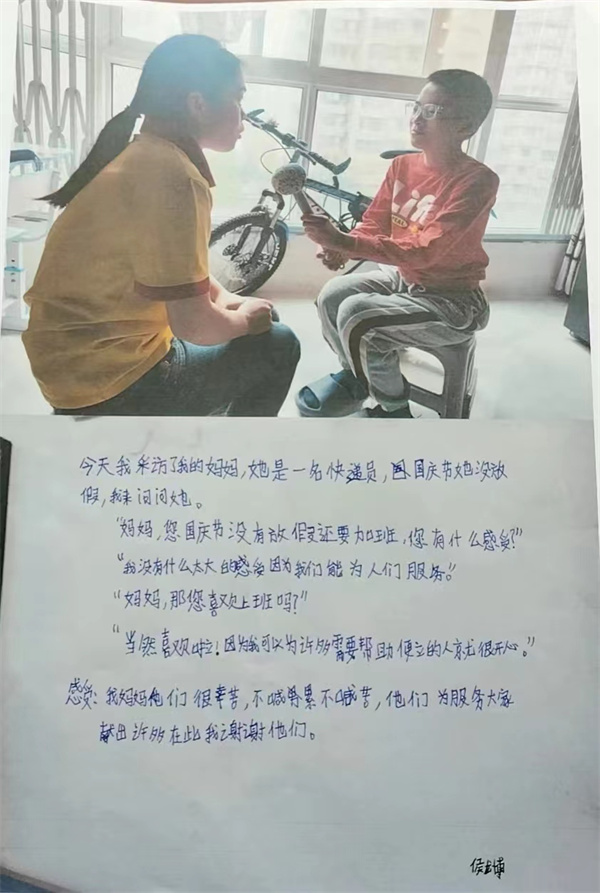 Lif
今天我采访了我的妈妈,她是一名快递员,国国庆节她没放
假,我来问问她。
“妈妈,您国庆节没有放假还要加班,您有什么感受?”
“我没有什么太大的感受因为我们能为人们服务。”
“妈妈,那您喜欢上班吗?”
“当然喜欢啦!因为我可以为许多需要帮助便立的人京尤很开心。”
感受:我妈妈他们很辛苦,不喊累不喊苦,他们为服务大家
献出许多在此我谢谢他们。